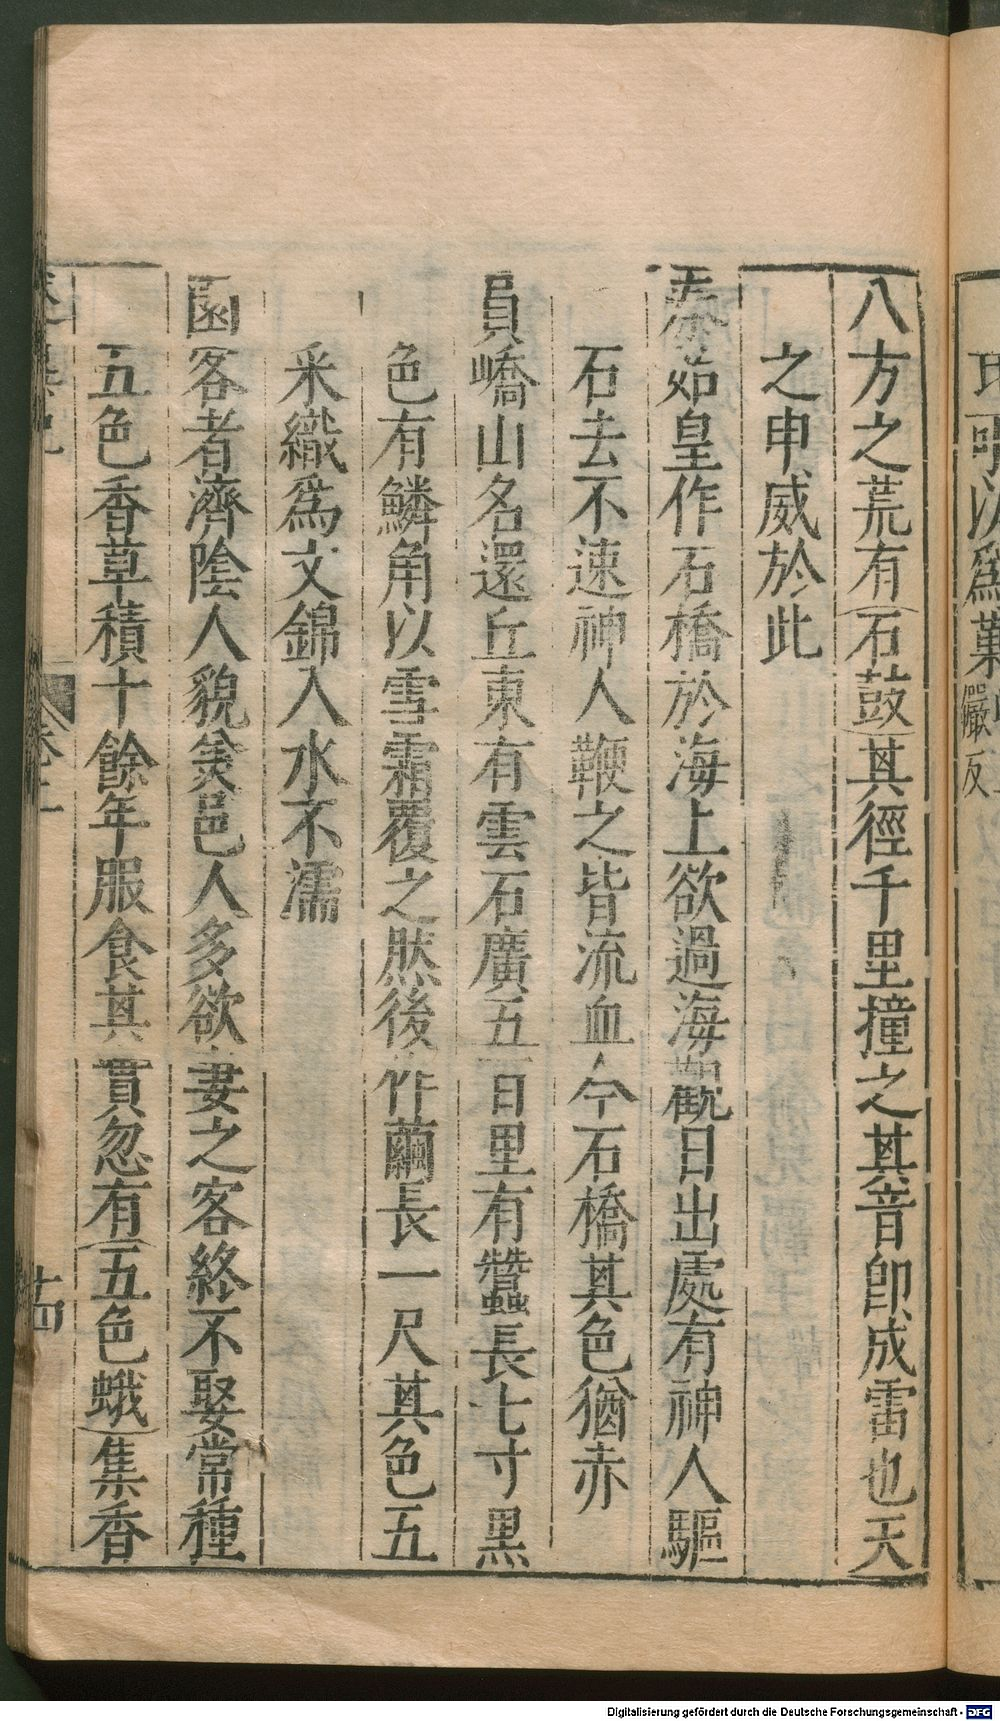 八方之荒有石鼓其徑千里撞之其音卽成雷也天
之申威於此
秦始皇作石橋於海上欲過海觀日出處有神人驅
石去不速神人鞭之皆流血今石橋其色猶赤
員嶠山名還丘東有雲石廣五百里有蠶長七寸黑
色有鱗角以雪霜覆之然後作繭長一尺其色五
采織爲文錦入水不濡
園客者濟陰人貌美邑人多欲妻之客終不娶常種
五色香草積十餘年服食其實忽有五色蛾集香
卷二
十四
爲菓
嚴
反
Digitalisierung gefördert durch die Deutsche Forschungsgemeinschaft - DFG